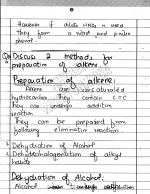 However if dilute HNO3 is used
They form a nitrate and nitro
phenol.
Q: Discuss 2 methods for
preparation of alkene
Preparation of alkene:
Alkene are unsaturated
hydrocarbon They contain C=C
They can undergo addition
reaction
They can be prepared from
following elimination reaction
1. Dehydration of Alcohol
2. Dehydrohalogenation of alkyl
halide
Dehydration of Alcohol:
Alcohol when undergo